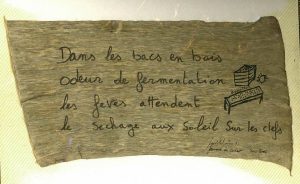 Dans les bacs en bois
Odeur de fermentation
les fèves attendent
le Sechage aux Soleil Sur les clefs